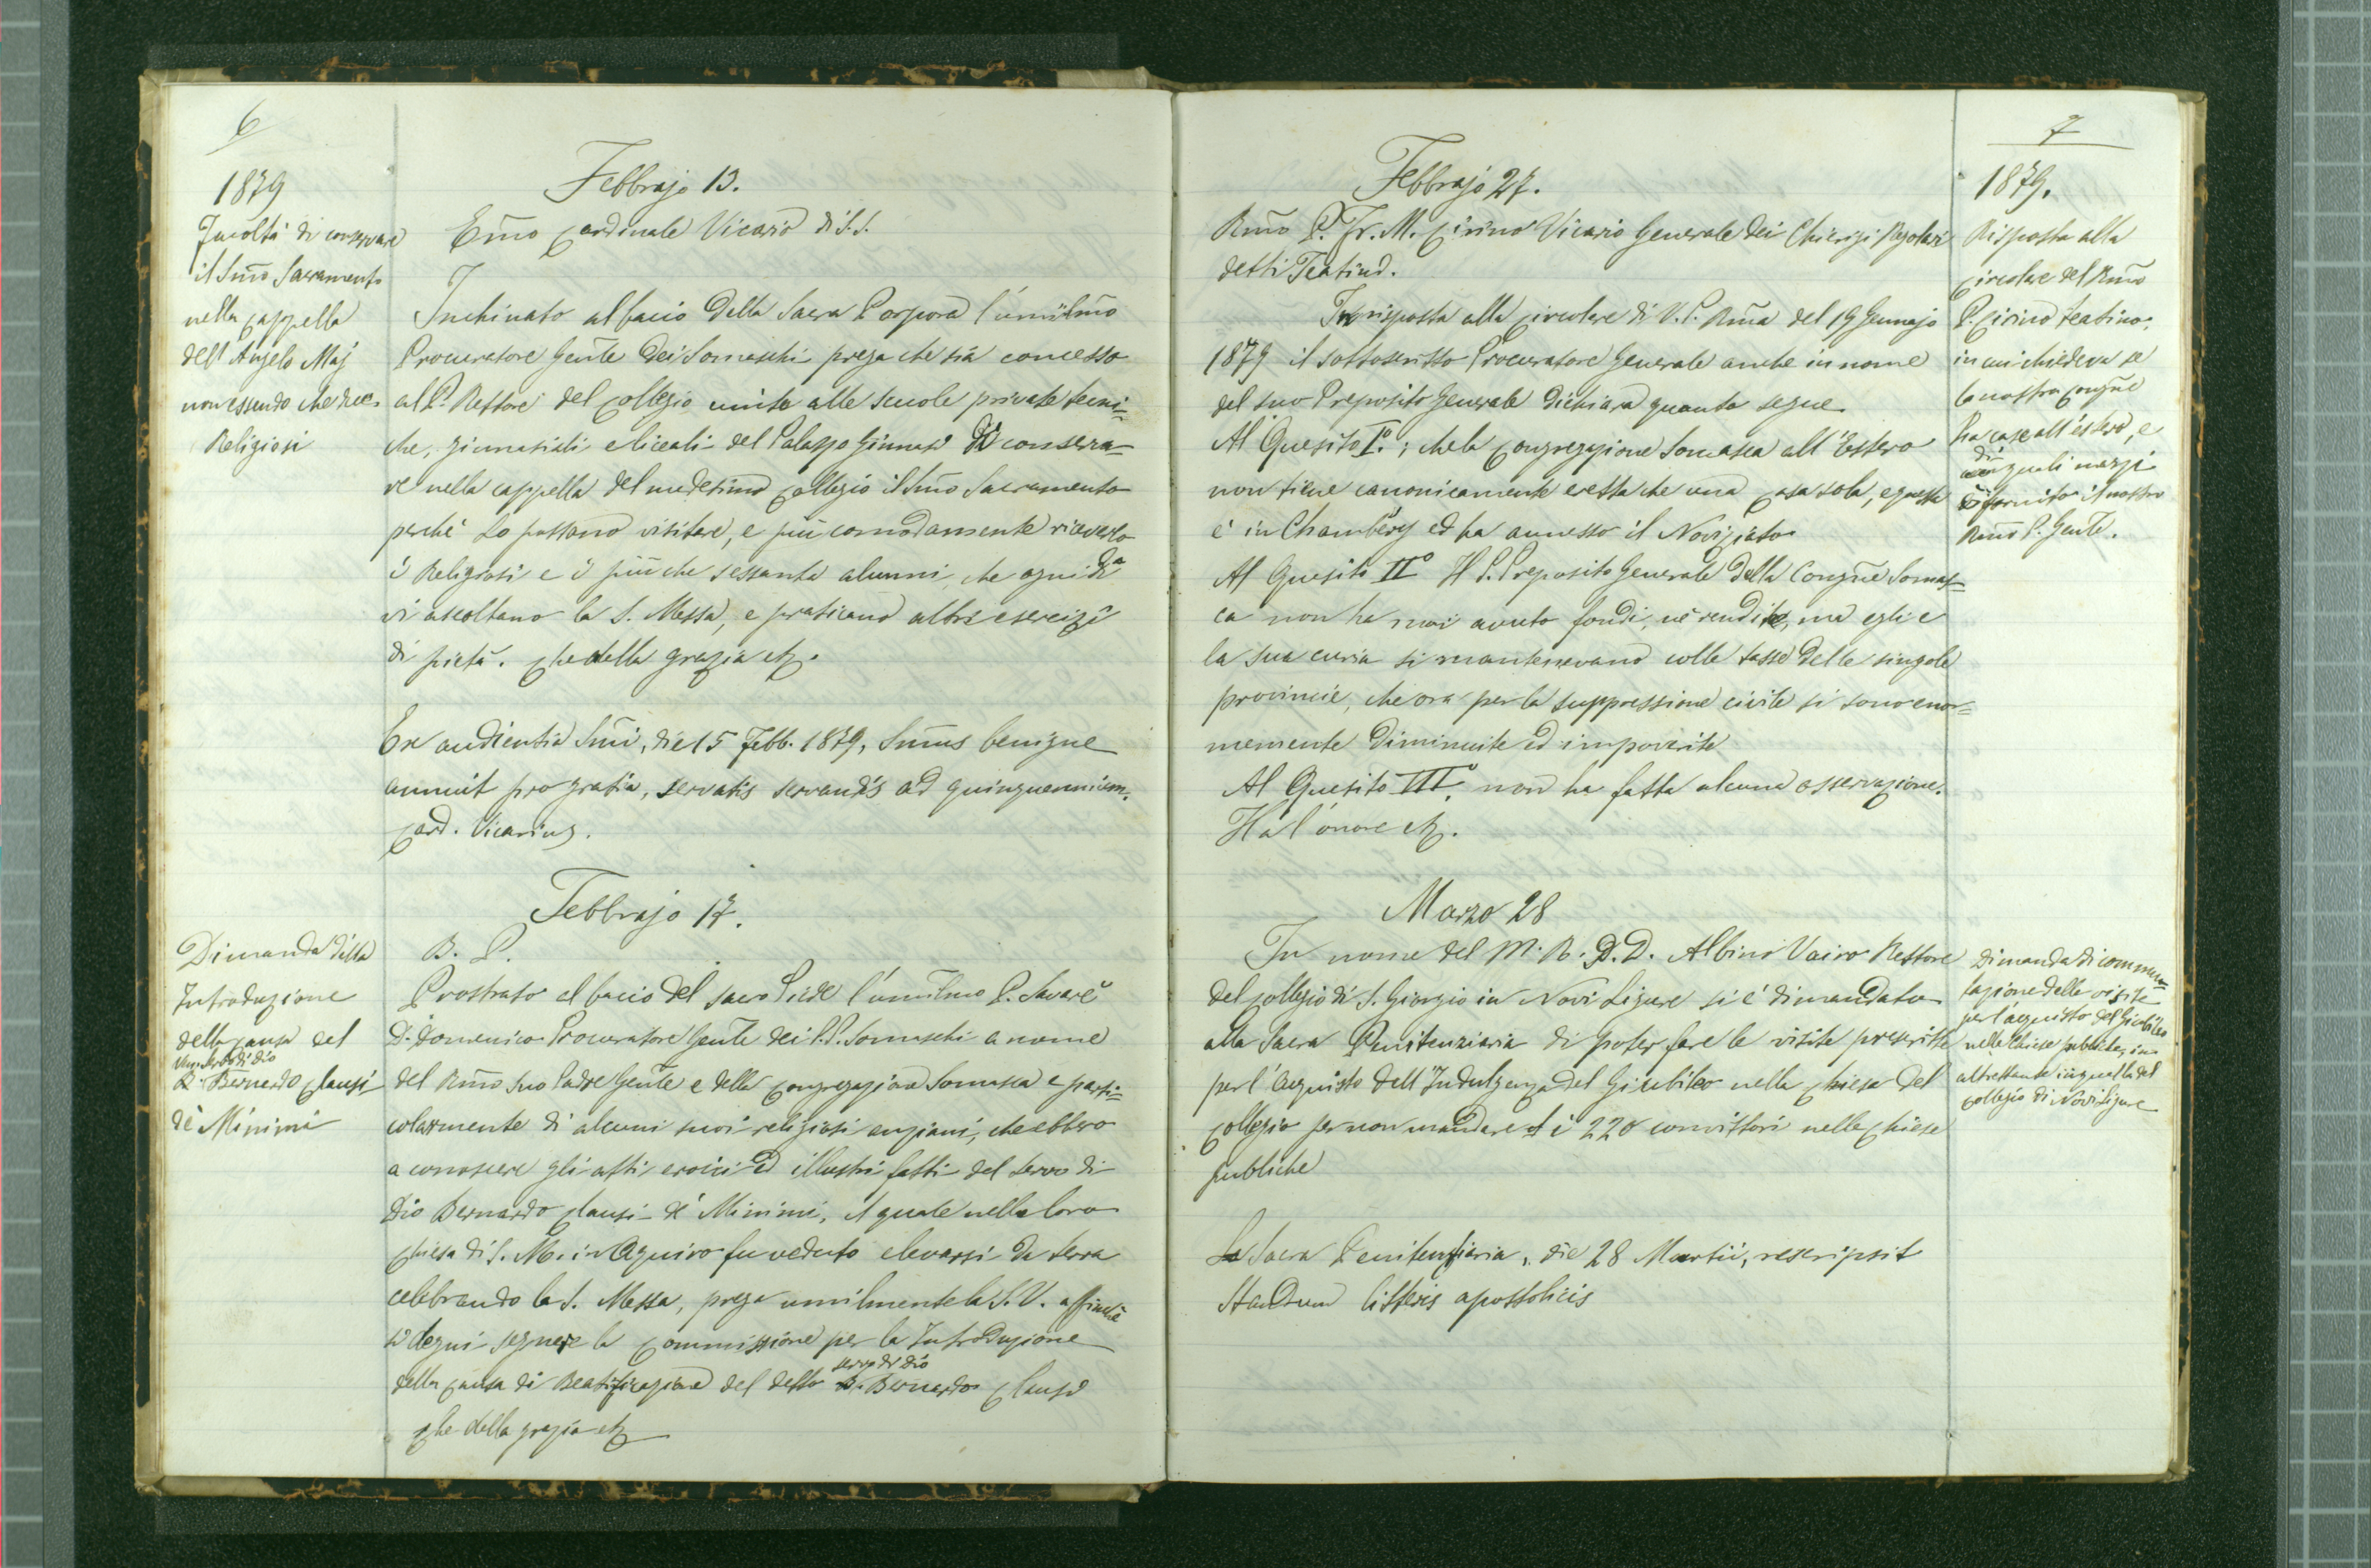 6
1879
Facoltà di conservare
il Smo Sacramento
nella Cappella
dell'Angelo Maj
non essendo che due
Religiosi
Febbrajo 13.
Emo Cardinale Vicario di S. S.
Inchinato al bacio della Sacra Porpora l'umilmo
Procuratore Genle dei Somaschi prega che sia concesso
al P. Rettore del Collegio unito alle scuole private tecni-
che, ginnasiali e liceali del Palazzo Ginnasi di conserva-
re nella cappella del medesimo Collegio il Smo Sacramento
perchè Lo possano visitare, e più comodamente riceverlo
i Religiosi e i più che sessanta alunni, che ogni dì
vi ascoltano la S. Messa, e praticano altri esercizi
di pietà. Che della grazia etc.
Ex audientia Smi, die 15 Febb. 1879, Smus benigne
annuit pro gratia, servatis servandis ad quinquennium.
Card. Vicarius.
Dimanda della
Introduzione
della causa del
Ven. Servo di Dio
P. Bernardo Clausi
de' Minimi
Febbrajo 17.
B. P.
Prostrato al bacio del sacro Piede l'umilmo P. Savarè
D. Domenico Procuratore Genle dei P.P. Somaschi a nome
del Rmo suo Padre Genle e della Congregazione Somasca e parti-
colarmente di alcuni suoi religiosi anziani, che ebbero
a conoscere gli atti eroici ed illustri fatti del servo di
Dio Bernardo Clausi de' Minimi, il quale nella loro
Chiesa di S. M. in Aquiro fu veduto elevarsi da terra
celebrando la S. Messa, prega umilmente la S. V. affinchè
si degni segnare la Commissione per la Introduzione
della causa di Beatificazione del detto servo di Dio P. Bernardo Clausi
Che della grazia etc
7
1879.
Febbrajo 27.
Rmo P. Fr. M. Cirino Vicario Generale dei Chierici Regolari
detti Teatini.
In risposta alla circolare di V. P. Rma del 19 Gennajo
1879 il sottoscritto Procuratore Generale anche in nome
del suo Preposito Generale dichiara quanto segue
Al Quesito I.°; che la Congregazione Somasca all'Estero
non tiene canonicamente eretta che una casa sola, e questa
è in Chambéry ed ha annesso il Noviziato
Al Quesito II° Il P. Preposito Generale della Congne Somas-
ca non ha mai avuto fondi, nè rendite, ma egli e
la sua curia si mantenevano colle tasse delle singole
provincie, che ora per la suppressione civile si sono enor-
memente diminuite ed impoverite
Al Quesito III°, non ha fatta alcuna osservazione.
Ha l'onore etc.
Risposta alla
circolare del Rmo
P. Cirino Teatino,
in cui chiedeva se
la nostra Congne
ha case all'estero, e
di quali mezzi
è fornito il nostro
Rmo P. Genle.
Marzo 28
In nome del M. R. P. D. Albino Vairo Rettore
del Collegio di S. Giorgio in Novi Ligure si è dimandato
alla Sacra Penitenziaria di poter fare le visite prescritte
per l'acquisto dell'Indulgenza del Giubileo nella Chiesa del
Collegio per non mandare i 220 convittori nelle Chiese
pubbliche
La Sacra Penitenziaria, die 28 Martii, rescripsit
Standum litteris apostolicis
Dimanda di commu-
tazione delle visite
per l'acquisto del Giubileo
nelle Chiese pubbliche, in
altrettante in quella del
Collegio di Novi Ligure